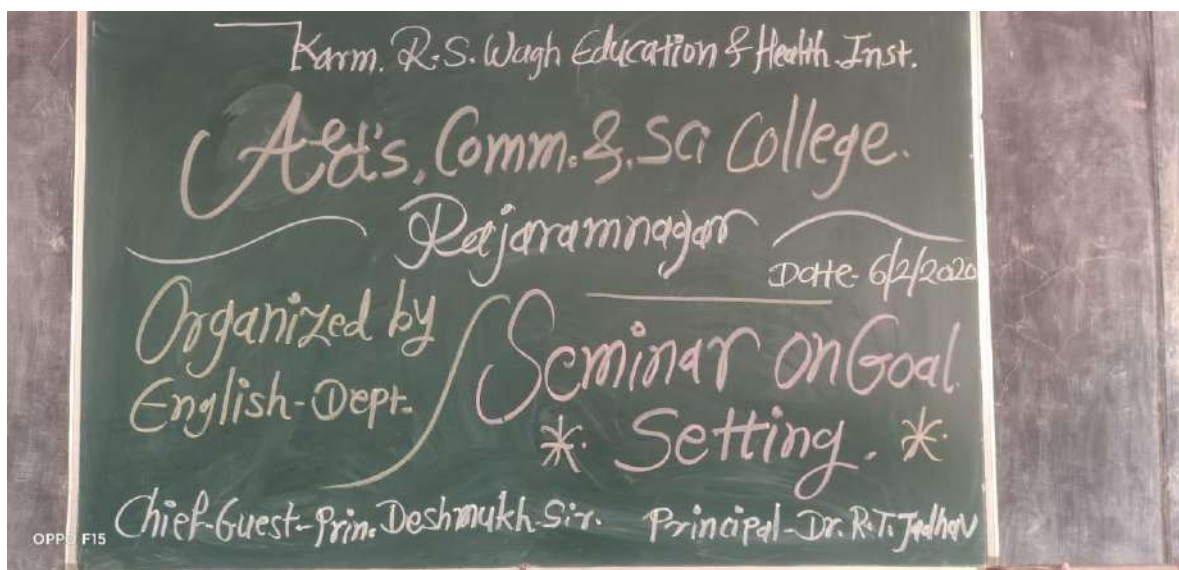 Karm. R. S. Wagh Education & Health. Inst.
Arts, Comm. & Sci College.
Rajaramnagar
Date- 6/2/2020
Organized by
English-Dept.
Seminar on Goal
Setting.
Chief-Guest-Prin. Deshmukh-Sir.
Principal-Dr. R.T. Jadhav
OPPO F15